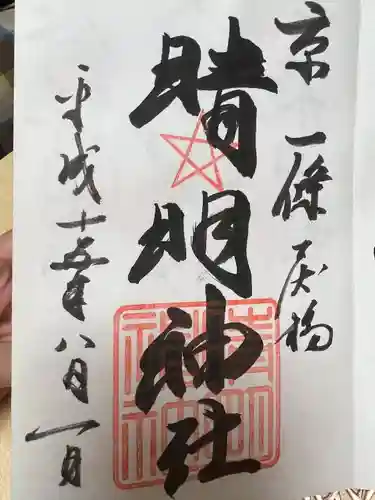 京 一條戻橋
晴明神社
平成十五年八月一日